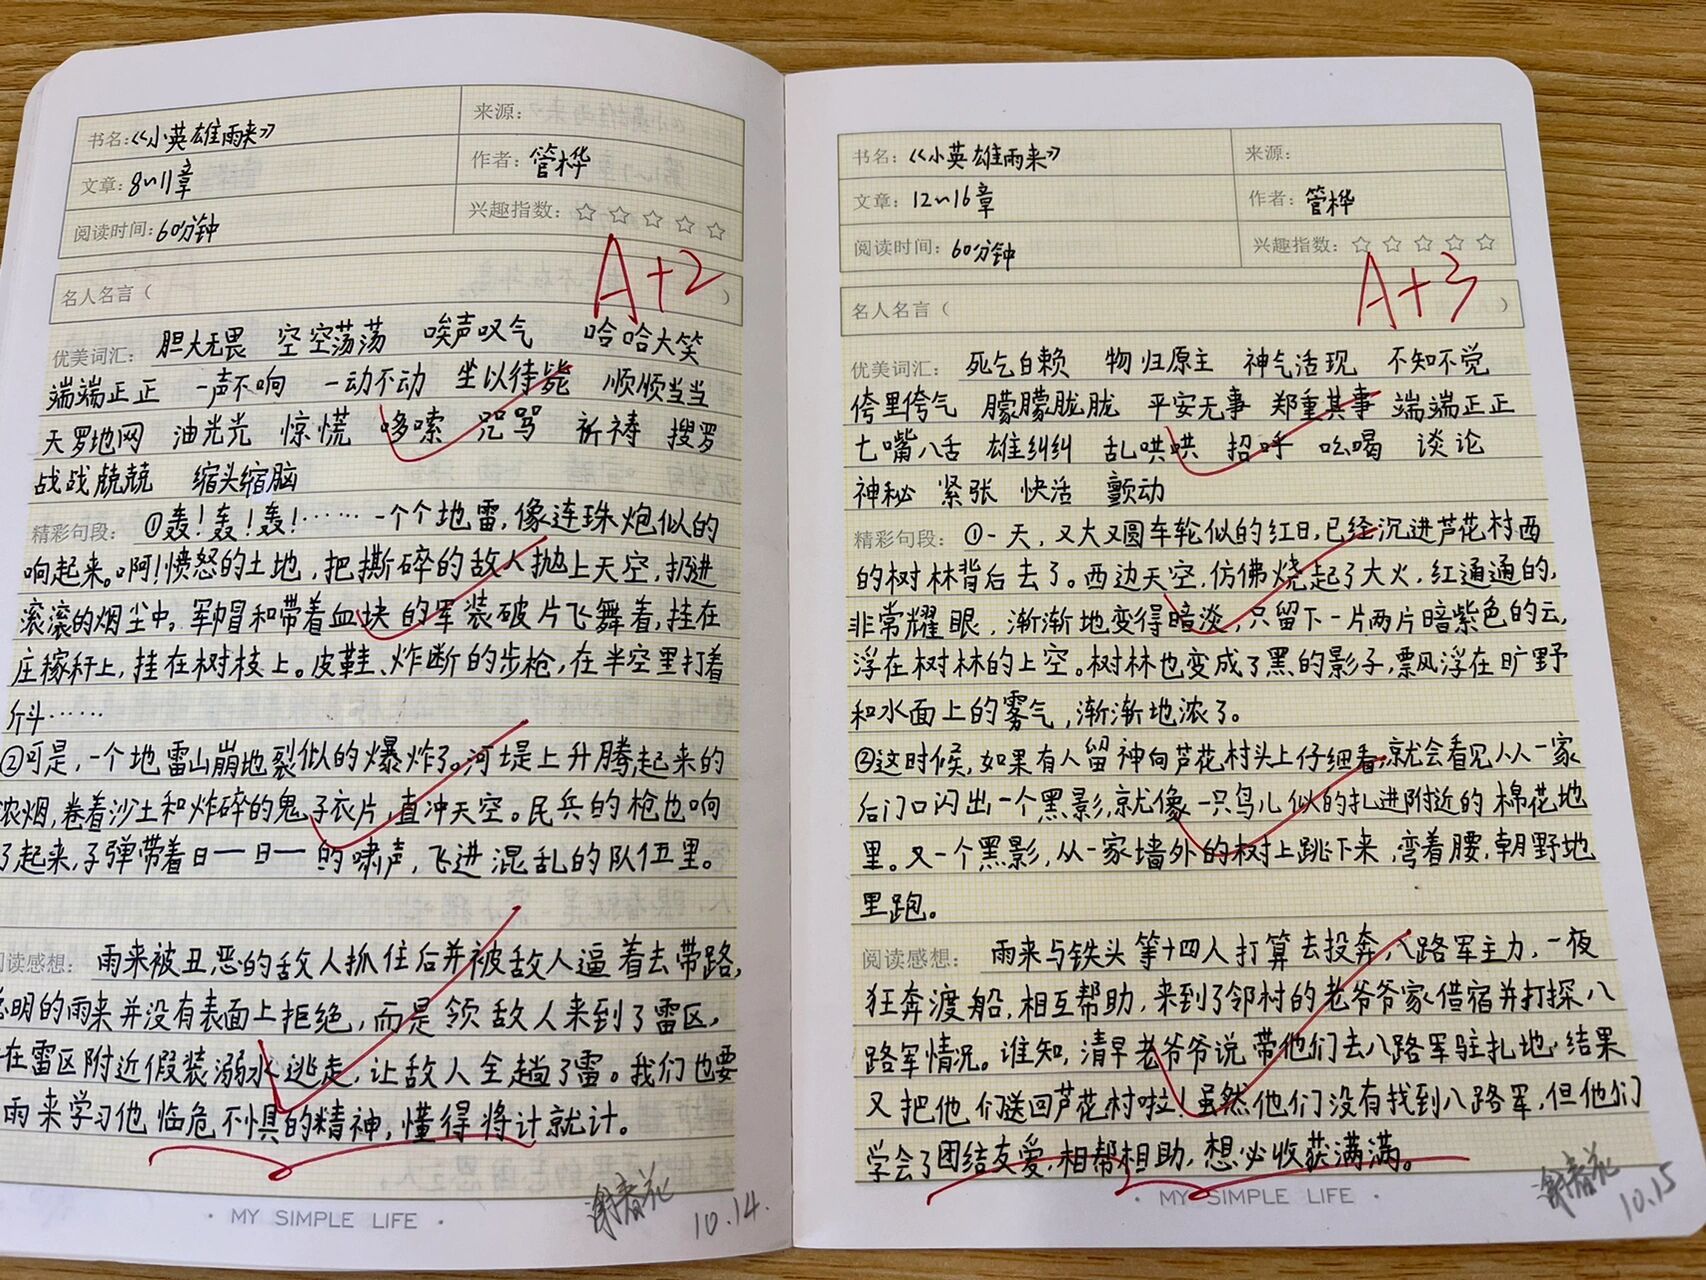 书名:《小英雄雨来》
来源:
文章:8~11章
作者:管桦
阅读时间:60分钟
兴趣指数:☆☆☆☆☆
A+2
名人名言( )
优美词汇: 胆大无畏 空空荡荡 唉声叹气 哈哈大笑
端端正正 一声不响 一动不动 坐以待毙 顺顺当当
天罗地网 油光光 惊慌 哆嗦 咒骂 祈祷 搜罗
战战兢兢 缩头缩脑
精彩句段: ①轰!轰!轰!…… 一个个地雷,像连珠炮似的
响起来。啊!愤怒的土地,把撕碎的敌人抛上天空,扔进
滚滚的烟尘中。军帽和带着血块的军装破片飞舞着,挂在
庄稼秆上,挂在树枝上。皮鞋、炸断的步枪,在半空里打着
斤斗……
②可是,一个地雷山崩地裂似的爆炸了。河堤上升腾起来的
浓烟,卷着沙土和炸碎的鬼子衣片,直冲天空。民兵的枪也响
了起来,子弹带着日一日一的啸声,飞进混乱的队伍里。
阅读感想: 雨来被丑恶的敌人抓住后并被敌人逼着去带路,
聪明的雨来并没有表面上拒绝,而是领敌人来到了雷区,
在雷区附近假装溺水逃走,让敌人全趟了雷。我们也要
雨来学习他临危不惧的精神,懂得将计就计。
· MY SIMPLE LIFE ·
谢春花
10.14.
书名:《小英雄雨来》
来源:
文章:12~16章
作者:管桦
阅读时间:60分钟
兴趣指数:☆☆☆☆☆
A+3
名人名言( )
优美词汇: 死乞白赖 物归原主 神气活现 不知不觉
侉里侉气 朦朦胧胧 平安无事 郑重其事 端端正正
七嘴八舌 雄纠纠 乱哄哄 招呼 吆喝 谈论
神秘 紧张 快活 颤动
精彩句段: ①一天,又大又圆车轮似的红日,已经沉进芦花村西
的树林背后去了。西边天空,仿佛烧起了大火,红通通的,
非常耀眼,渐渐地变得暗淡,只留下一片两片暗紫色的云,
浮在树林的上空。树林也变成了黑的影子,飘风浮在旷野
和水面上的雾气,渐渐地浓了。
②这时候,如果有人留神向芦花村头上仔细看,就会看见从一家
后门口闪出一个黑影,就像一只鸟儿似的扎进附近的棉花地
里。又一个黑影,从一家墙外的树上跳下来,弯着腰,朝野地
里跑。
阅读感想: 雨来与铁头等十四人打算去投奔八路军主力,一夜
狂奔渡船,相互帮助,来到了邻村的老爷爷家借宿并打探八
路军情况。谁知,清早老爷爷说带他们去八路军驻扎地,结果
又把他们送回芦花村啦!虽然他们没有找到八路军,但他们
学会了团结友爱,相帮相助,想必收获满满。
· MY SIMPLE LIFE ·
谢春花
10.15